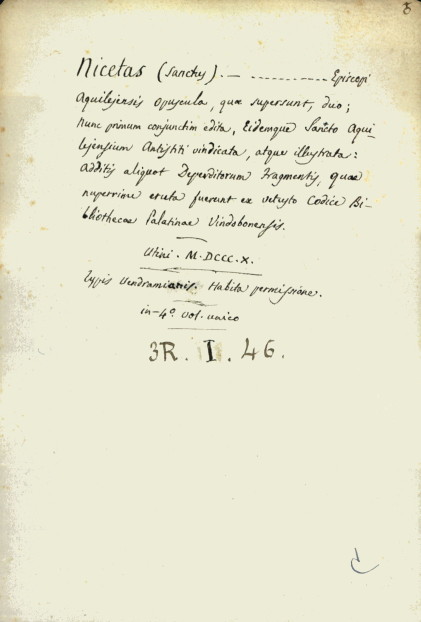 8
Nicetas (Sanctus). — ---------- Episcopi
Aquilejensis opuscula, quæ supersunt, duo;
nunc primum conjunctim edita, Eidemque Sancto Aqui-
lejensium Antistiti vindicata, atque illustrata:
additis aliquot Deperditorum Fragmentis, quae
nuperrime eruta fuerunt ex vetusto Codice Bi-
bliothecae Palatinae Vindobonensis.
Utini. M.DCCC.X.
typis Vendramianis. Habita permissione.
in-4º vol. unico
3R. I. 46.